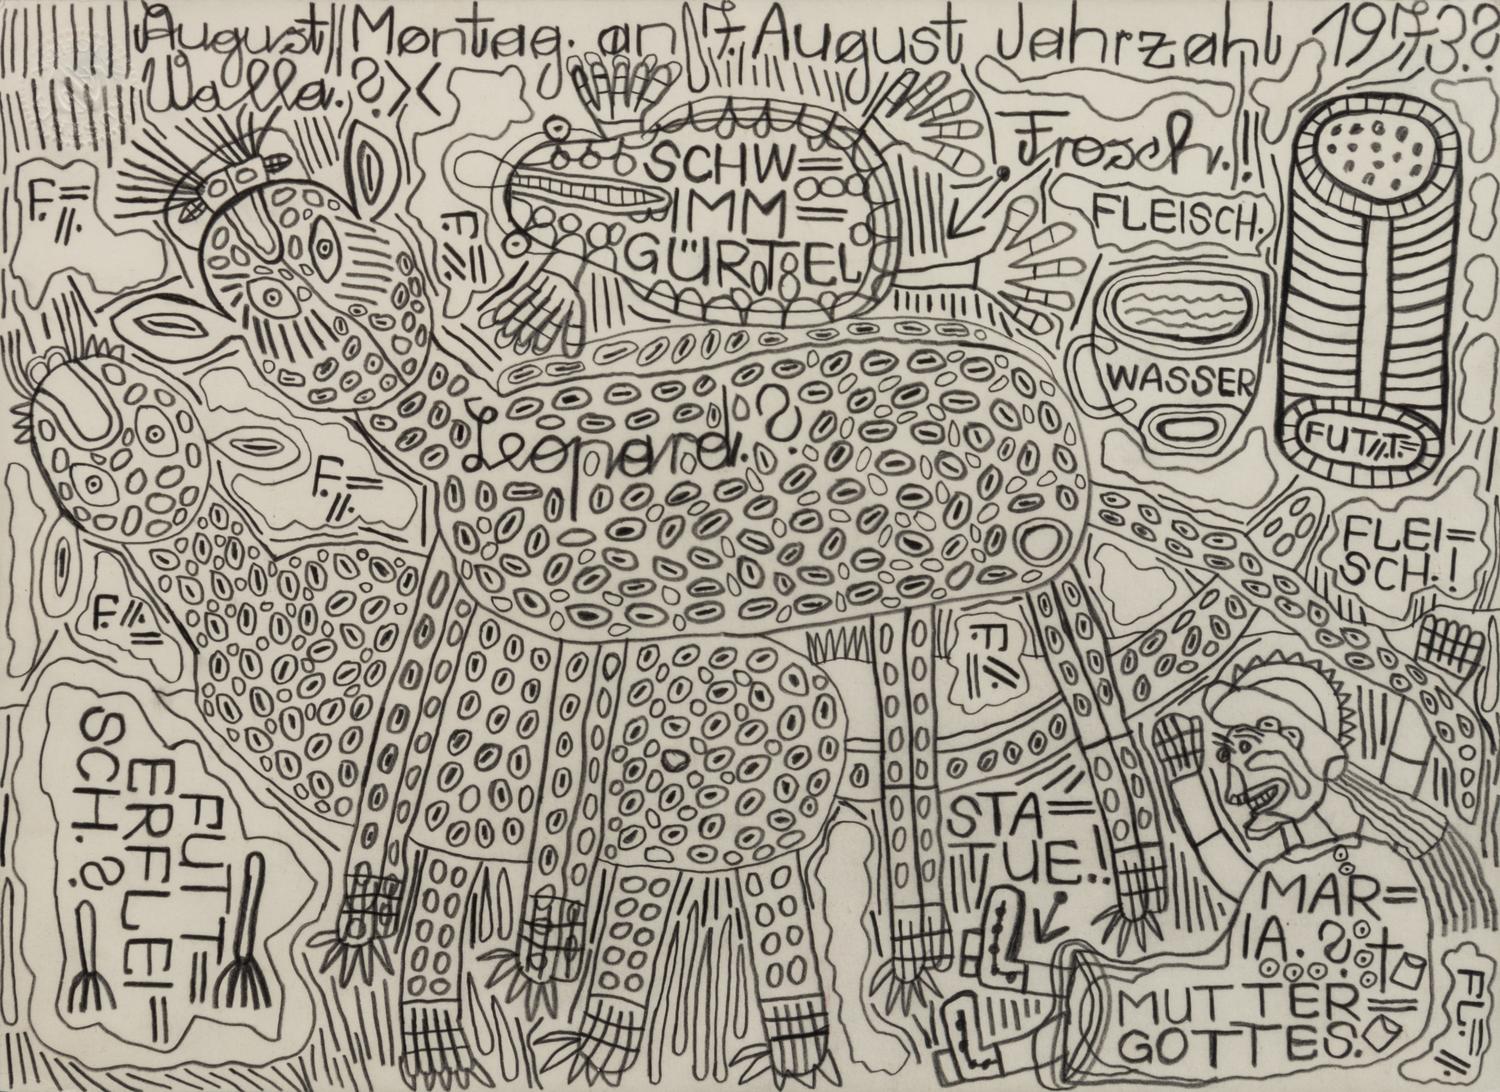 August Montag. an 7. August Jahrzahl 1973?
Walla.?><
Frosch.!
SCHW=
IMM=
GÜRTEL
FLEISCH.
WASSER
FUTT.=
F.=
F.=
F.=
F.=
F.=
Leopard.?
FLEI=
SCH.!
FUTT=
ERFLEI=
SCH.?
STA=
TUE.!
MAR=
IA.?
MUTTER=
GOTTES.
FL.=